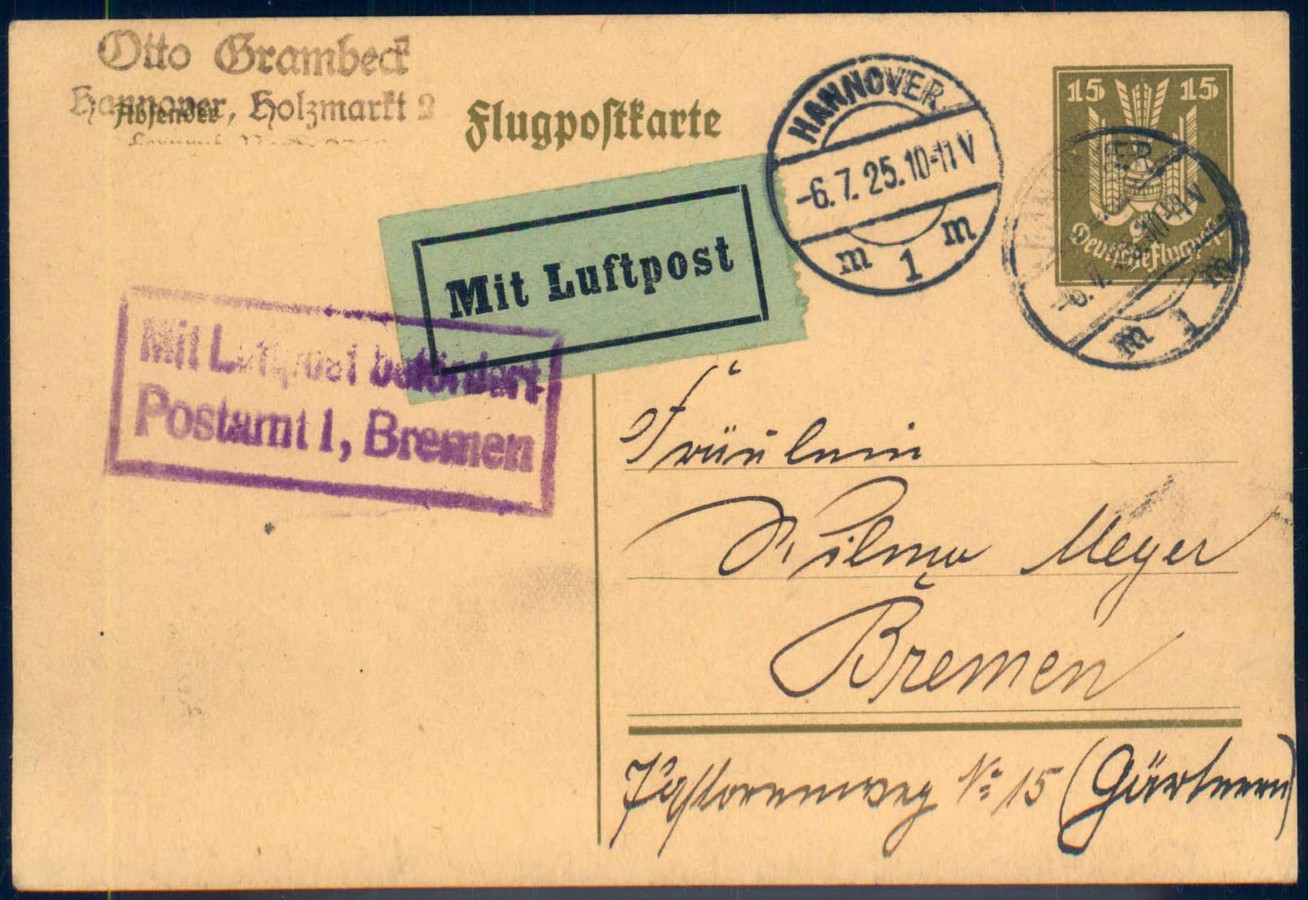 Otto Grambeck
Hannover, Holzmarkt 2
Absender
Flugpostkarte
HANNOVER
-6.7.25.10-11 V
m 1 m
15 15
Deutsche Flugpost
HANNOVER
-6.7.25.10-11 V
m 1 m
Mit Luftpost
Mit Luftpost befördert
Postamt 1, Bremen
Fräulein
Wilma Meyer
Bremen
Pastorenweg No 15 (Gärtnerei)